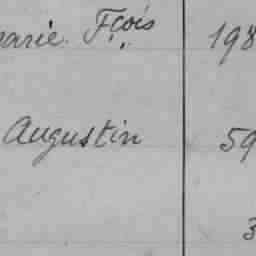 marie Fçois 198
Augustin 59
3